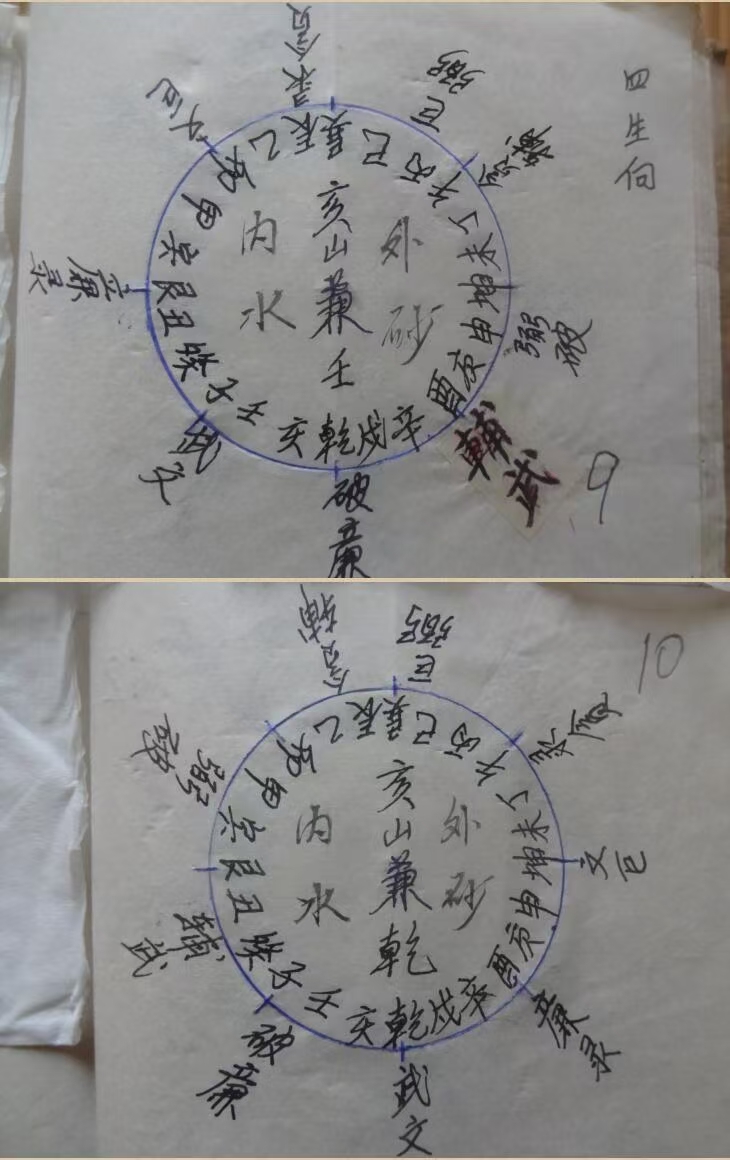 四生向
9
贪
录
巨
弼
内
水
亥山兼壬
外
砂
乙辰巽巳丙午丁未坤申庚酉辛戌乾亥壬子癸丑艮寅甲卯
弼
破
輔
武
破
廉
武
文
廉
录
10
輔
贪
弼
巨
内
水
亥山兼乾
外
砂
乙辰巽巳丙午丁未坤申庚酉辛戌乾亥壬子癸丑艮寅甲卯
文
巨
廉
录
武
文
破
廉
輔
武
弼
破